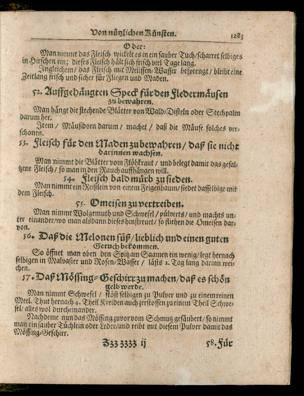 Von nützlichen Künsten. 1283
Oder:
Man nimmt das Fleisch / wickelt es in ein sauber Tuch / scharret selbiges
in Hirschen ein; dieses Fleisch hält sich frisch viel Tage lang.
Ingleichem / das Fleisch mit Meissen-Wasser besprengt / bleibt eine
Zeitlang frisch und sicher für Fliegen und Maden.
52. Auffgehängten Speck für den Fledermäusen
zu bewahren.
Man hängt die stechende Blätter von Wald-Disteln oder Stechpalm
darum her.
Item / Mäußdorn darum / machet / daß die Mäuse solches ver-
schonen.
53. Fleisch für den Maden zu bewahren / daß sie nicht
darinnen wachsen.
Man nimmt die Blätter vom Flöhkraut / und belegt damit das gesal-
tzene Fleisch / so man in den Rauch auffhängen will.
54. Fleisch bald mürb zu sieden.
Man nimmt ein Reißlein von einem Feigenbaum / siedet dasselbige mit
dem Fleisch.
55. Omeisen zu vertreiben.
Man nimmt Wolgemuth und Schwefel / pülverts / und machts un-
ter einander / wo man alsdann dieses hinstreuet / so fliehen die Omeisen dar-
von.
56. Daß die Melonen süß / lieblich und einen guten
Geruch bekommen.
So öffnet man oben den Spitz am Saamen ein wenig / legt hernach
selbigen in Malvasier und Rosen-Wasser / läßts 2. Tag lang darin wei-
chen.
57. Daß Mössing-Geschirr zu machen / daß es schön
gelb werde.
Man nimmt Schwefel / stößt selbigen zu Pulver und zu einem reinen
Meel. Thut hernach 4. Theil Kreiden auch zerstossen zu einem Theil Schwe-
fel / alles wol durcheinander.
Nachdeme nun das Mössing zuvor vom Schmutz gesäubert / so nimmt
man ein sauber Tüchlein oder Leder und reibt mit diesem Pulver damit das
Mössing-Geschirr.
Zzz zzzz ij 58. Für